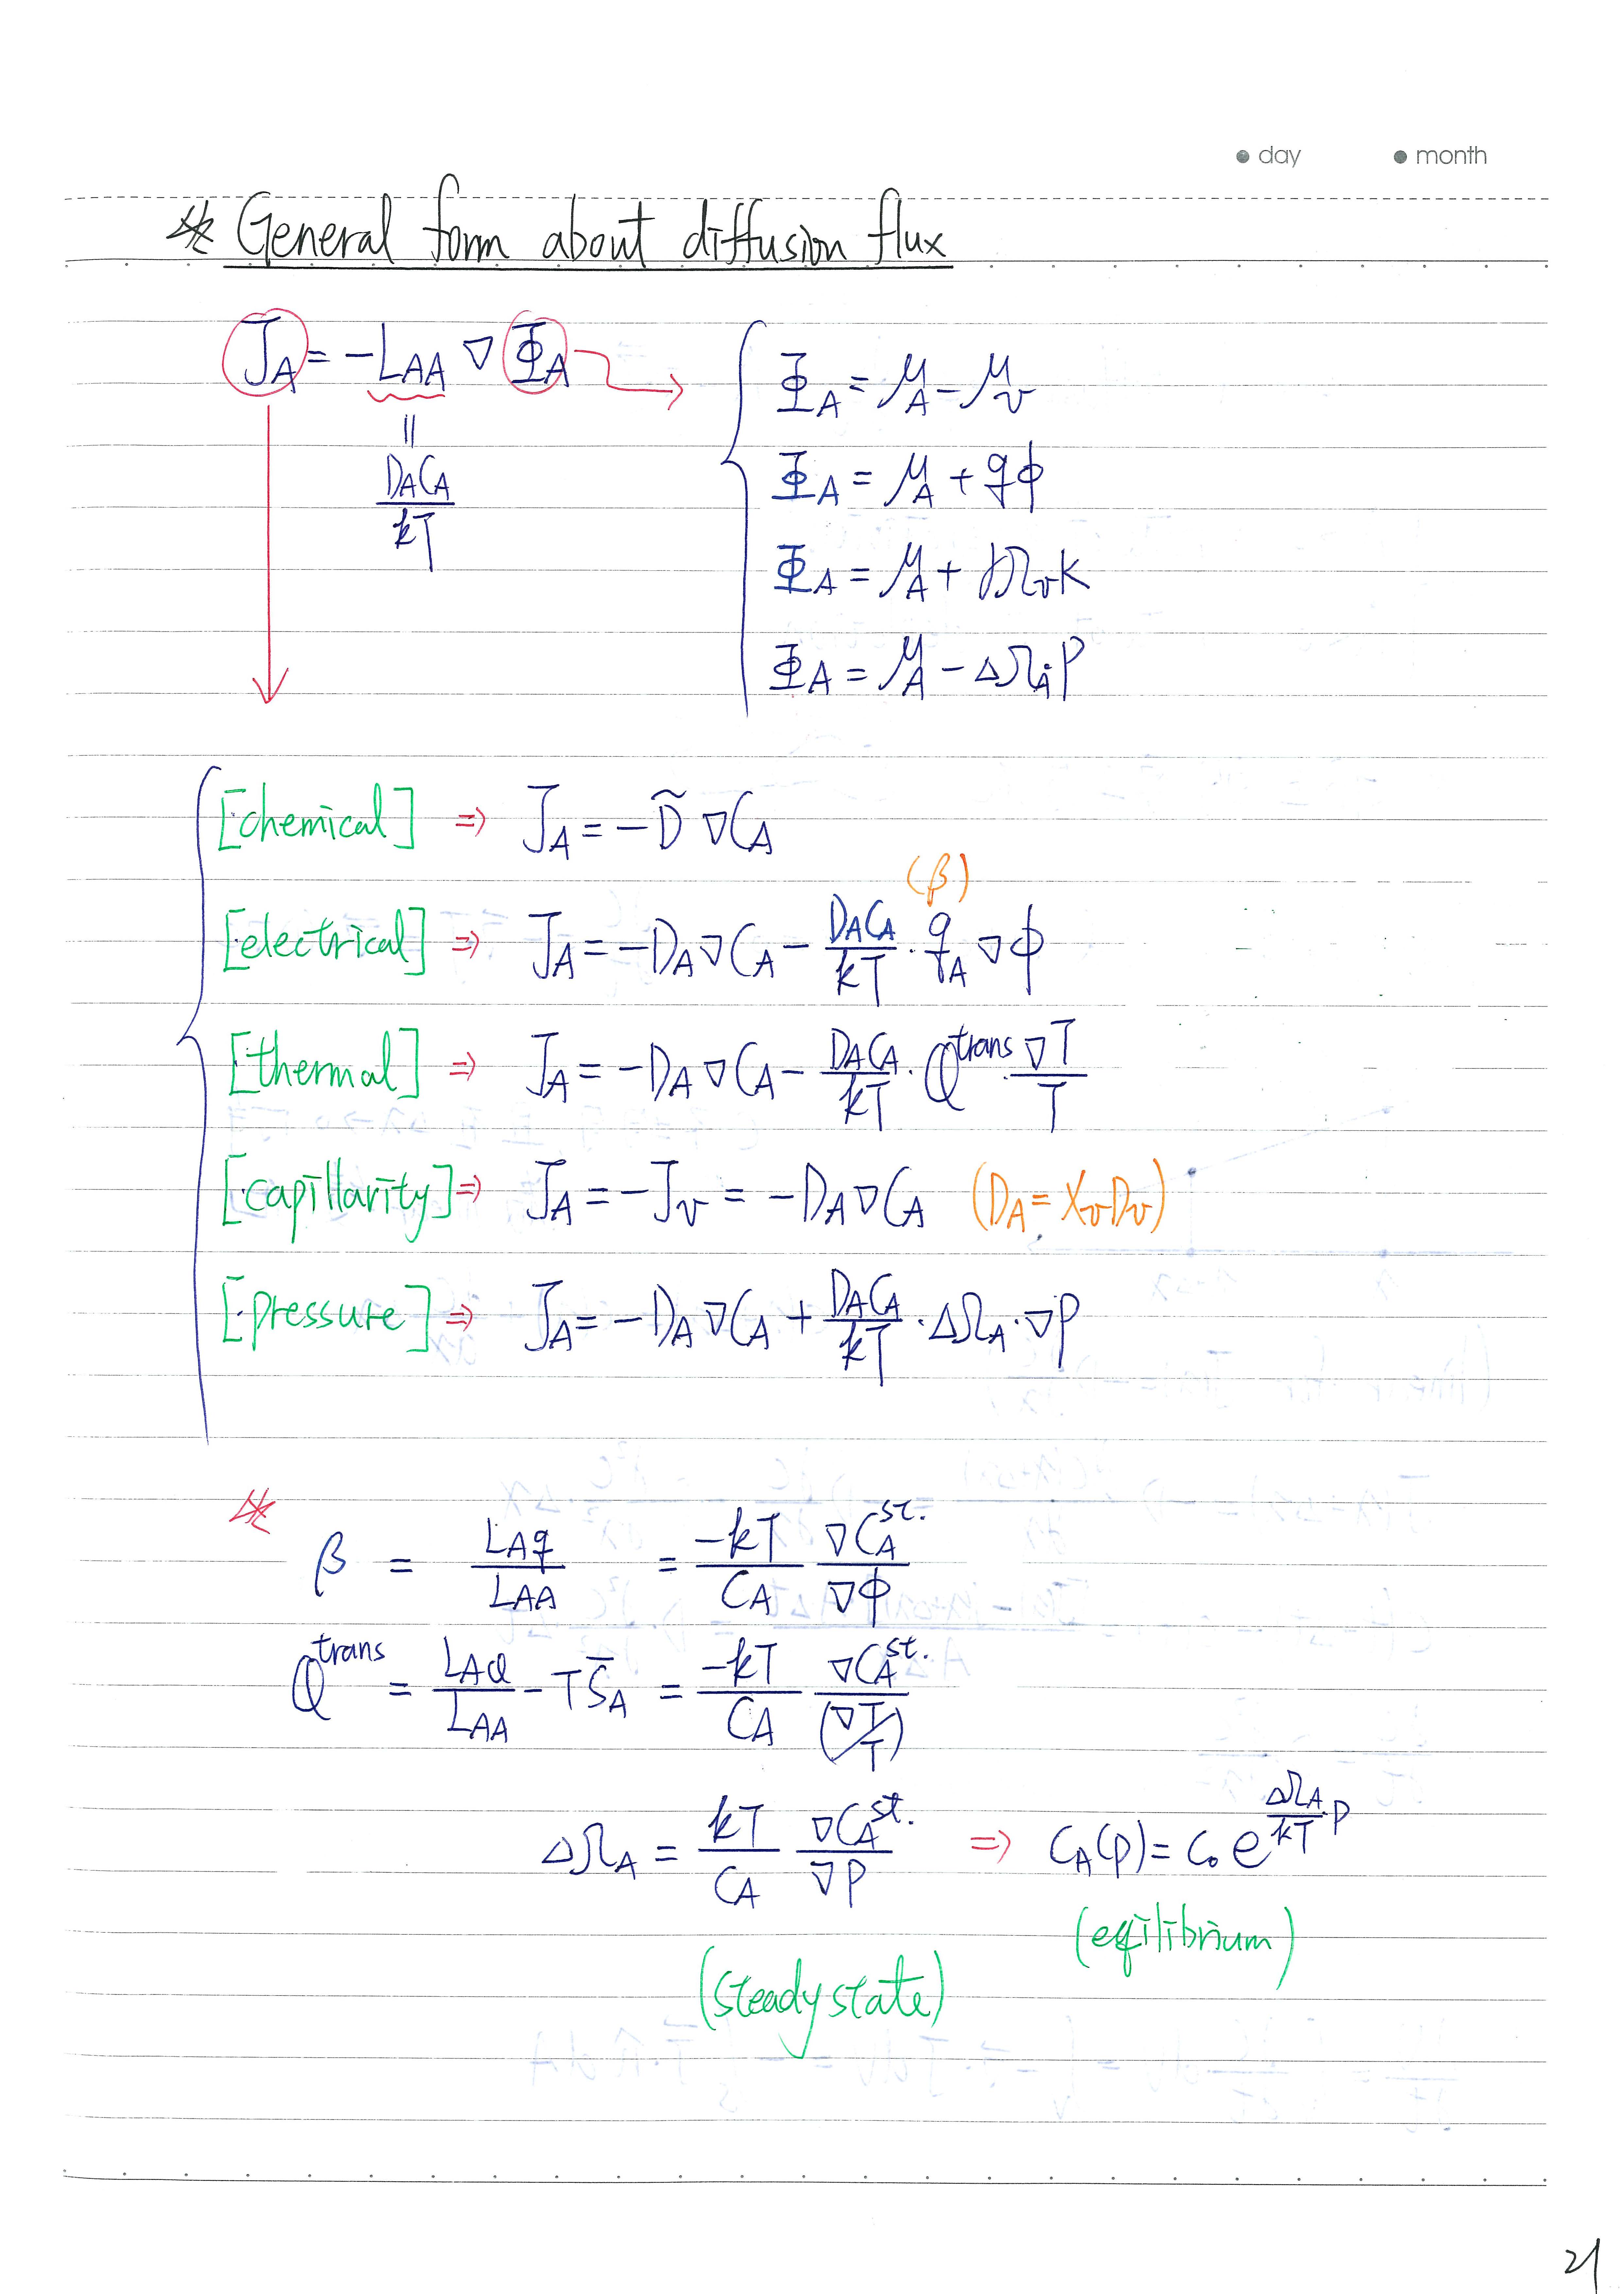 day month
※ General form about diffusion flux
J_A = -L_AA ∇Φ_A →
= D_A C_A / kT
Φ_A = μ_A - μ_v
Φ_A = μ_A + qφ
Φ_A = μ_A + γΩ_v K
Φ_A = μ_A - ΔΩ_A P
[chemical] ⇒ J_A = -D̃ ∇C_A
[electrical] ⇒ J_A = -D_A ∇C_A - (D_A C_A / kT) · q_A ∇φ (β)
[thermal] ⇒ J_A = -D_A ∇C_A - (D_A C_A / kT) · Q^trans · ∇T / T
[capillarity] ⇒ J_A = -J_v = -D_A ∇C_A (D_A = X_v D_v)
[pressure] ⇒ J_A = -D_A ∇C_A + (D_A C_A / kT) · ΔΩ_A · ∇P
※
β = L_Aq / L_AA = (-kT / C_A) (∇C_A^st. / ∇φ)
Q^trans = L_AQ / L_AA - T S̄_A = (-kT / C_A) (∇C_A^st. / (∇T/T))
ΔΩ_A = (kT / C_A) (∇C_A^st. / ∇P) ⇒ C_A(P) = C_0 e^((ΔΩ_A / kT)·P)
(eqilibrium)
(steady state)
21